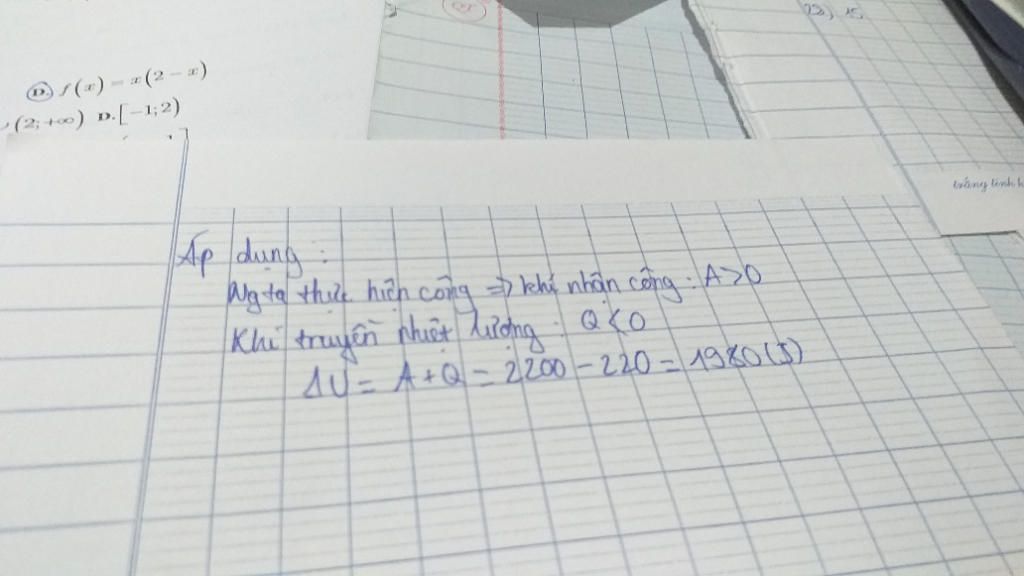 D. f(x) = x(2 − x)
(2; +∞) D. [−1; 2)
22) 15
trắng tinh
Áp dụng :
Ng ta thực hiện công => khí nhận công : A > 0
Khí truyền nhiệt lượng : Q < 0
ΔU = A + Q = 2200 − 220 = 1980 (J)